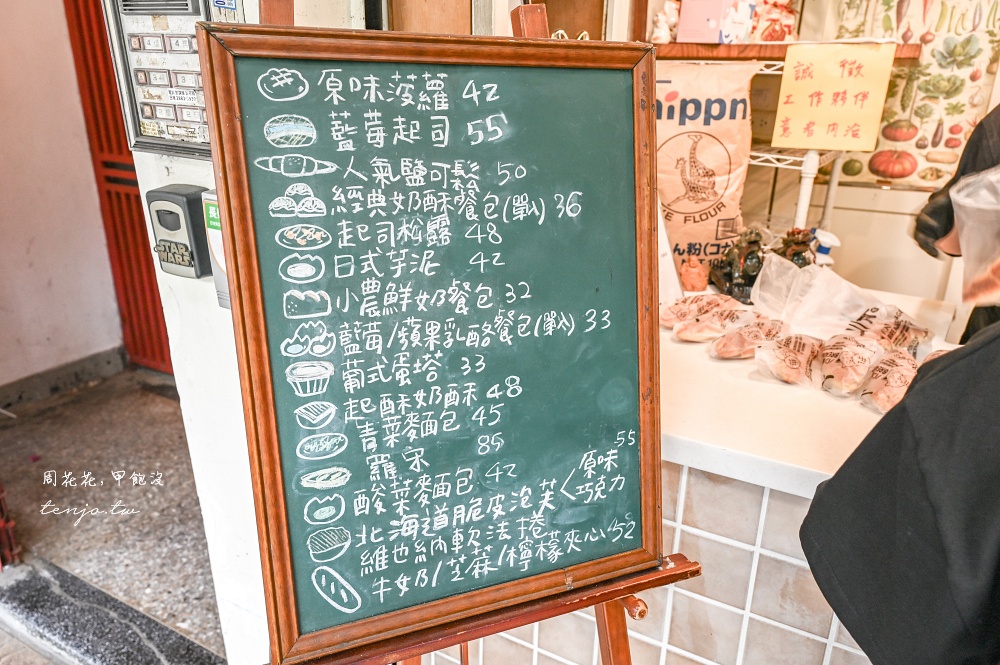 原味菠蘿 42
藍莓起司 55
人氣鹽可鬆 50
經典奶酥餐包(單入) 36
起司松露 48
日式芋泥 42
小農鮮奶餐包 32
藍莓/蘋果乳酪餐包(單入) 33
葡式蛋塔 33
起酥奶酥 48
青菜麵包 45
羅宋 85
酸菜麵包 42
北海道脆皮泡芙<原味 巧克力 55
維也納軟法捲
牛奶/芝蔴/檸檬夾心 52
誠徵
工作夥伴
意者內洽
nippn
FLOUR
STAR
WARS
周花花,甲飽沒
tenjo.tw